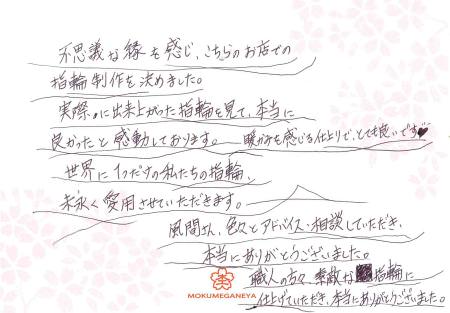 不思議な縁を感じ、こちらのお店での
指輪制作を決めました。
実際に出来上がった指輪を見て、本当に
良かったと感動しております。 暖かみを感じる仕上りで、とても良いです♥
世界に1つだけの私たちの指輪、
末永く愛用させていただきます。
風間さん、色々とアドバイス・相談していただき、
本当にありがとうございました。
職人の方々、素敵な指輪に
仕上げていただき、本当にありがとうございました。
MOKUMEGANEYA